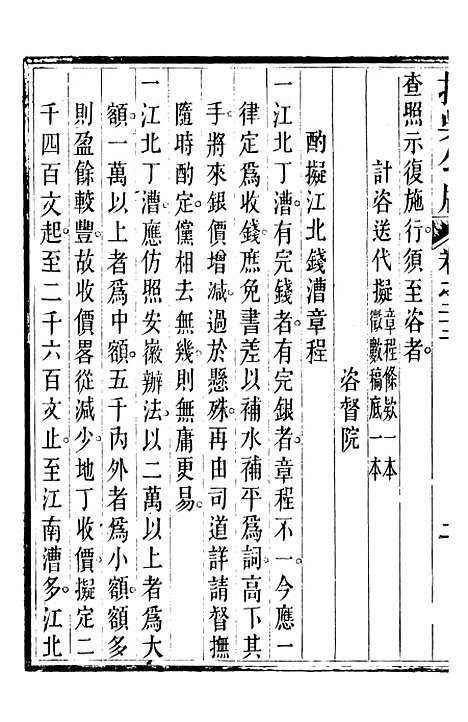 卷之三
二
查照示復施行須至咨者
計咨送代擬章程條欵一本徵數稿底一本
咨督院
酌擬江北錢漕章程
一江北丁漕有完錢者有完銀者章程不一今應一
律定為收錢庶免書差以補水補平為詞高下其
手將來銀價增減過於懸殊再由司道詳請督撫
隨時酌定儻相去無幾則無庸更易
一江北丁漕應仿照安徽辦法以二萬以上者為大
額一萬以上者為中額五千內外者為小額額多
則盈餘較豐故收價畧從減少地丁收價擬定二
千四百文起至二千六百文止至江南漕多江北